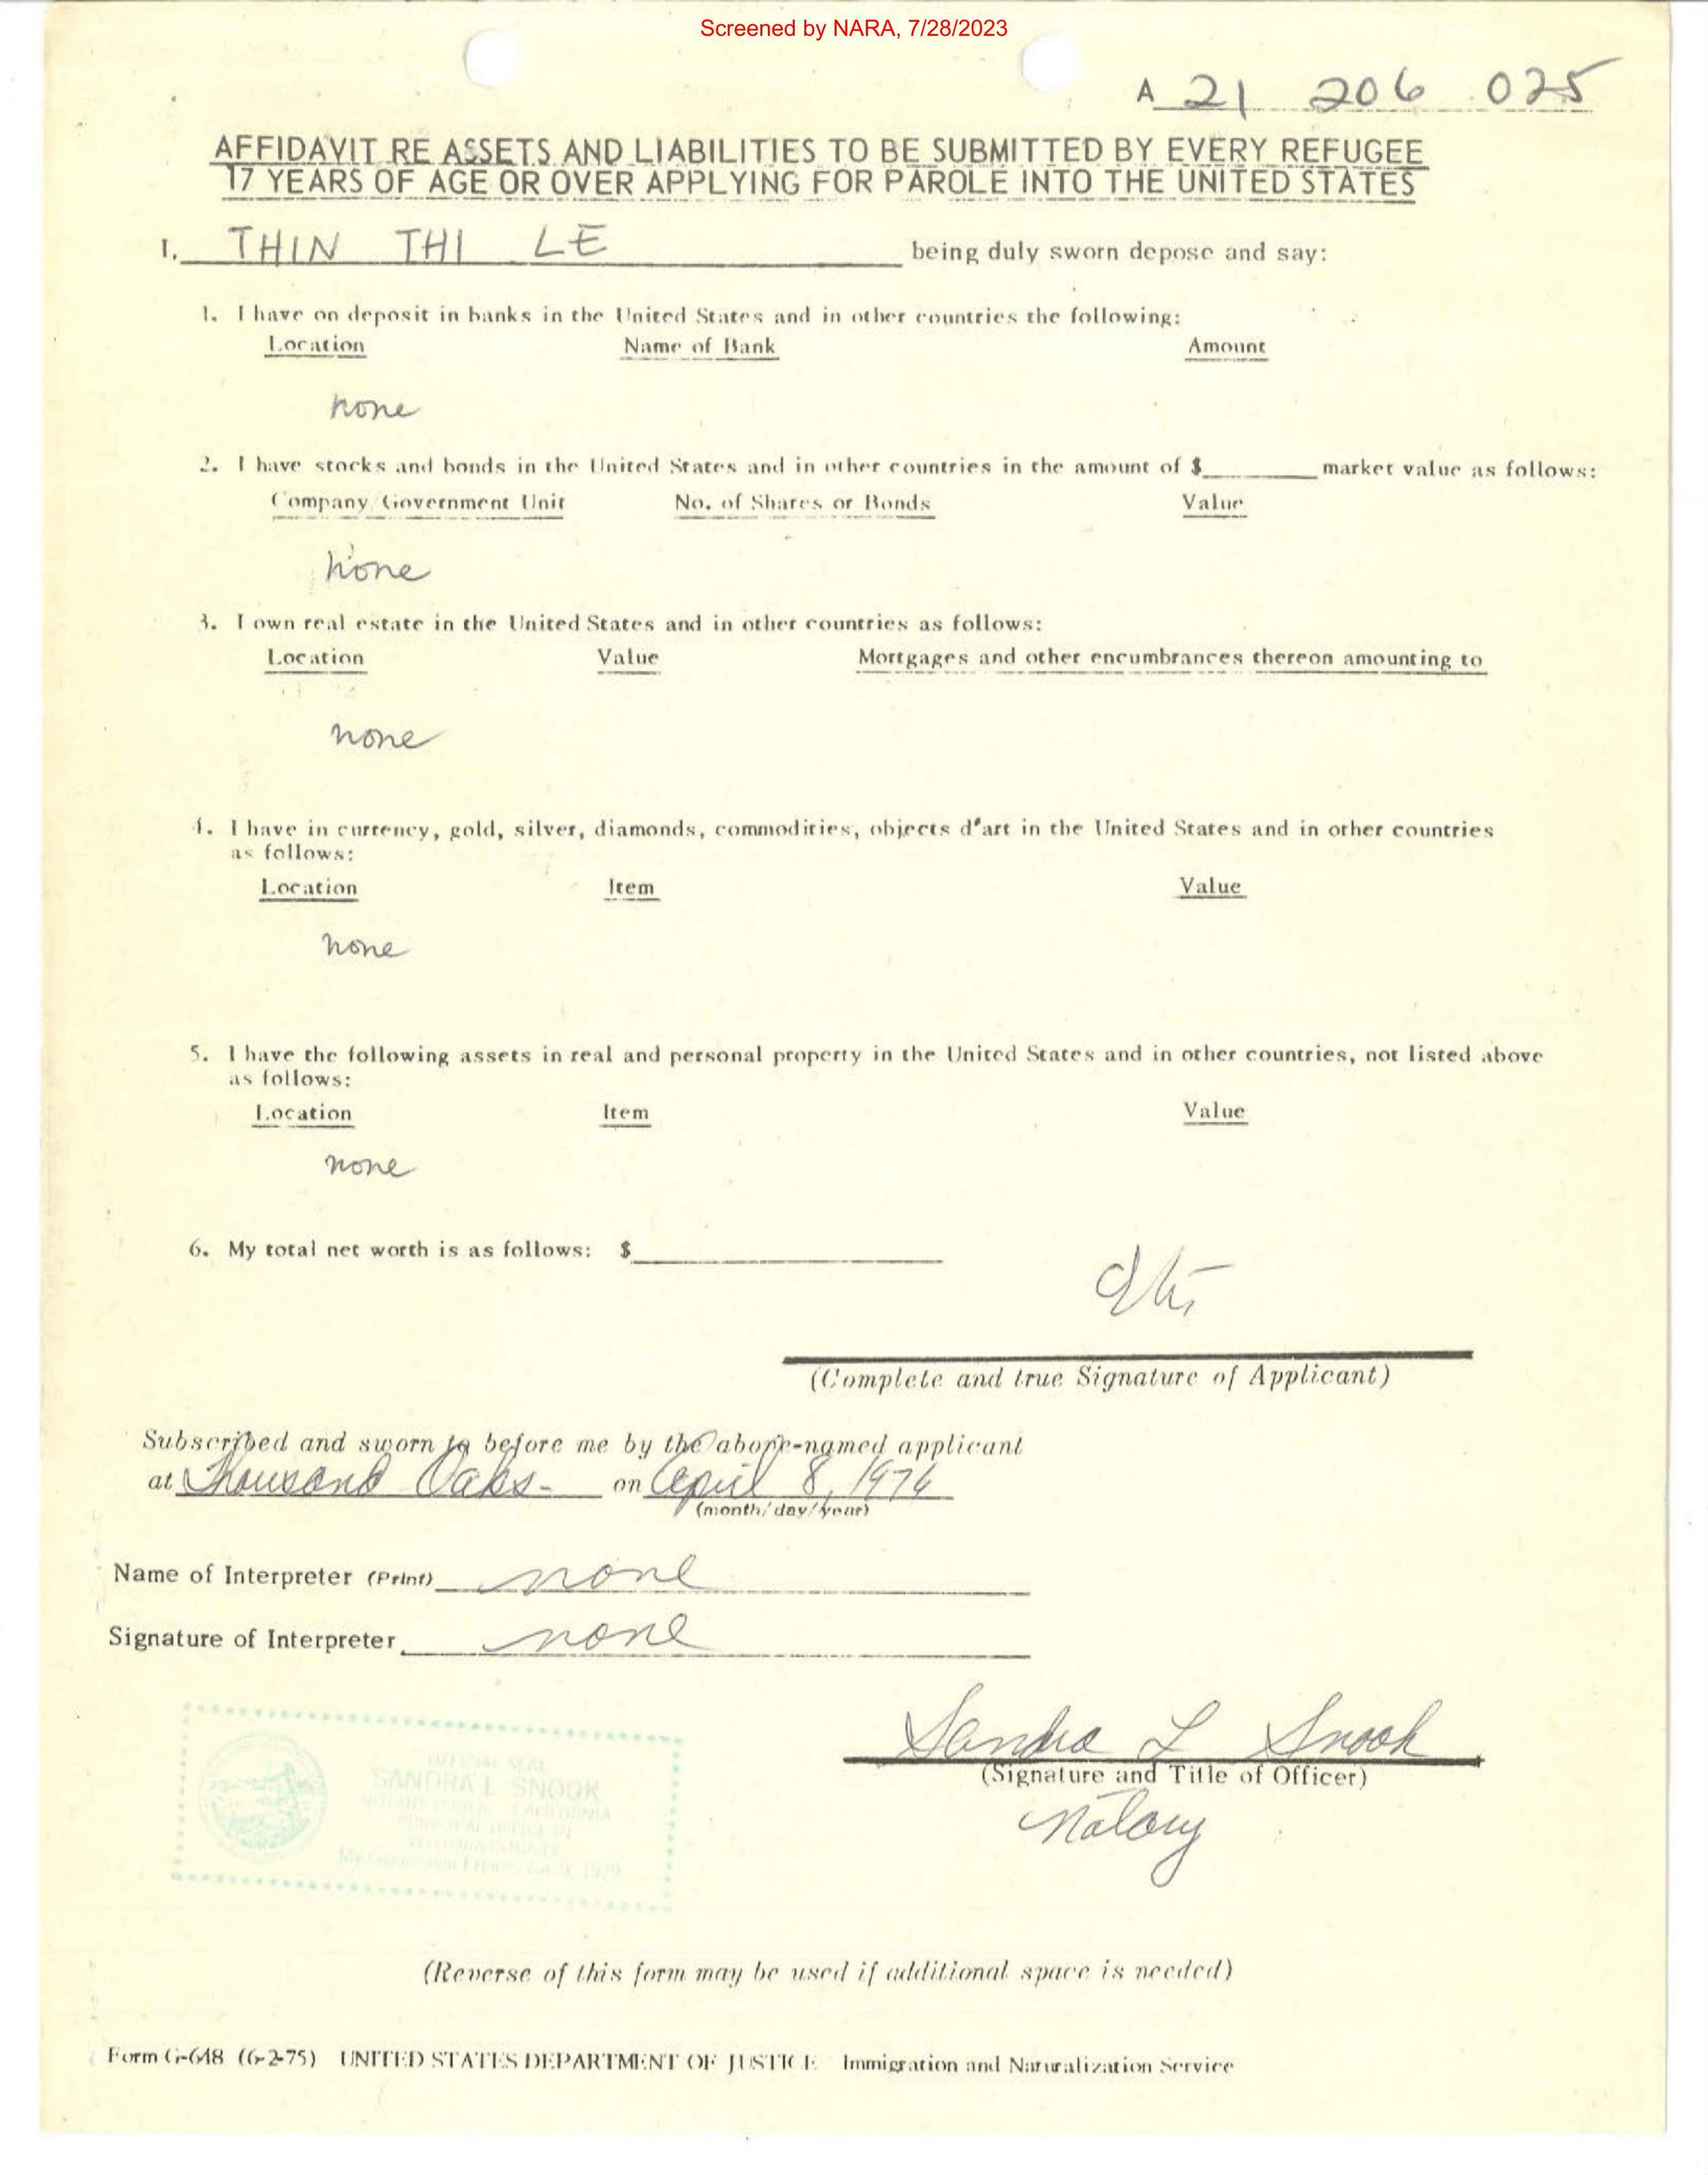 Screened by NARA, 7/28/2023
A 21 206 025
AFFIDAVIT RE ASSETS AND LIABILITIES TO BE SUBMITTED BY EVERY REFUGEE
17 YEARS OF AGE OR OVER APPLYING FOR PAROLE INTO THE UNITED STATES
I, THIN THI LE being duly sworn depose and say:
1. I have on deposit in banks in the United States and in other countries the following:
Location Name of Bank Amount
none
2. I have stocks and bonds in the United States and in other countries in the amount of $ market value as follows:
Company/Government Unit No. of Shares or Bonds Value
none
3. I own real estate in the United States and in other countries as follows:
Location Value Mortgages and other encumbrances thereon amounting to
none
4. I have in currency, gold, silver, diamonds, commodities, objects d'art in the United States and in other countries
as follows:
Location Item Value
none
5. I have the following assets in real and personal property in the United States and in other countries, not listed above
as follows:
Location Item Value
none
6. My total net worth is as follows: $
(Complete and true Signature of Applicant)
Subscribed and sworn to before me by the above-named applicant
at Thousand Oaks on April 8, 1976
(month/day/year)
Name of Interpreter (Print) none
Signature of Interpreter none
Sandra L Snook
(Signature and Title of Officer)
Notary
OFFICIAL SEAL
SANDRA L SNOOK
CALIFORNIA
PRINCIPAL OFFICE IN
VENTURA COUNTY
My Commission Expires 1979
(Reverse of this form may be used if additional space is needed)
Form G-648 (6-2-75) UNITED STATES DEPARTMENT OF JUSTICE Immigration and Naturalization Service